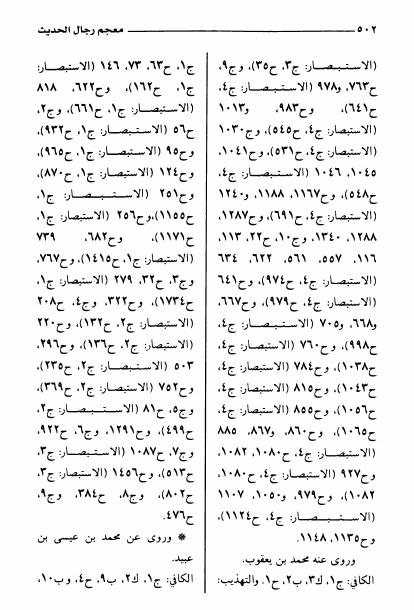 ٥٠٢ معجم رجال الحديث
(الاستبصار: ج٣، ح٣٥)، وج٩،
ح٧٦٣، و٩٧٨ (الاستبصار: ج٤،
ح٦٤١)، وح٩٨٣، و١٠١٣
(الاستبصار: ج٤، ح٥٤٥)، وج١٠٣٠
(الاستبصار: ج٤، ح٥٣١)، وح١٠٤١،
١٠٤٥، ١٠٤٦ (الاستبصار: ج٤،
ح٥٤٨)، وح١١٦٧، ١١٨٨، و١٢٤٠
(الاستبصار: ج٤، ح٦٩١)، وح١٢٨٧،
١٢٨٨، ١٣٤٠، وج١٠، ح٢٢، ١١٣،
١١٦، ٥٥٧، ٥٦١، ٦٢٢، ٦٣٤
(الاستبصار: ج٤، ح٩٧٤)، وح٦٤١
(الاستبصار: ج٤، ح٩٧٩)، وح٦٦٧،
و٦٦٨، و٧٠٥ (الاستبصار: ج٤،
ح٩٩٨)، وح٧٦٠ (الاستبصار: ج٤،
ح١٠٣٨)، وح٧٨٤ (الاستبصار: ج٤،
ح١٠٤٣)، وح٨١٥ (الاستبصار: ج٤،
ح١٠٥٦)، وح٨٥٥ (الاستبصار: ج٤،
ح١٠٦٥)، وح٨٦٠، و٨٦٧، ٨٨٥
(الاستبصار: ج٤، ح١٠٨٠، ١٠٨٢،
وح٩٢٧ (الاستبصار: ج٤، ح١٠٨٠،
١٠٨٢)، وح٩٧٩، و١٠٥٠، ١١٠٧
(الاستبصار: ج٤، ح١١٢٤)،
وح١١٣٥، ١١٤٨.
وروى عنه محمد بن يعقوب.
الكافي: ج١، ك٣، ب٢، ح١. والتهذيب:
ج١، ح٦٣، ٧٣، ١٤٦ (الاستبصار:
ج١، ح١٦٢)، وح٦٢٢، ٨١٨
(الاستبصار: ج١، ح٦٦١)، وج٢،
ح٥٦ (الاستبصار: ج١، ح٩٣٢)،
وح٩٥ (الاستبصار: ج١، ح٩٦٥)،
وح١٢٤ (الاستبصار: ج١، ح٨٧٠)،
وح٢٥١ (الاستبصار: ج١،
ح١١٥٥)،وح٢٥٦ (الاستبصار: ج١،
ح١١٧١)، وح٦٨٢، ٧٣٩
(الاستبصار: ج١، ح١٤١٥)، وح٧٦٧،
وج٣، ح٣٢، ٢٧٩ (الاستبصار: ج١،
ح١٧٣٤)، وح٣٢٢، وج٤، ح٢٠٨
(الاستبصار: ج٢، ح١٣٢)، وح٢٢٠
(الاستبصار: ج٢، ح١٣٦)، وح٢٩٦،
٥٠٣ (الاستبصار: ج٢، ح٢٣٥)،
وح٧٥٢ (الاستبصار: ج٢، ح٣٦٩)،
وج٥، ح٨١ (الاستبصار: ج٢،
ح٤٩٩)، وح١٢٩١، وج٦، ح٩٢٢،
وج٧، ح١٠٨٧ (الاستبصار: ج٣،
ح٥١٣)، وح١٤٥٦ (الاستبصار: ج٣،
ح٨٠٢)، وج٨، ح٣٨٤، وج٩،
ح٤٧٦.
* وروى عن محمد بن عيسى بن
عبيد.
الكافي: ج١، ك٢، ب٩، ح٤، وب١٠،